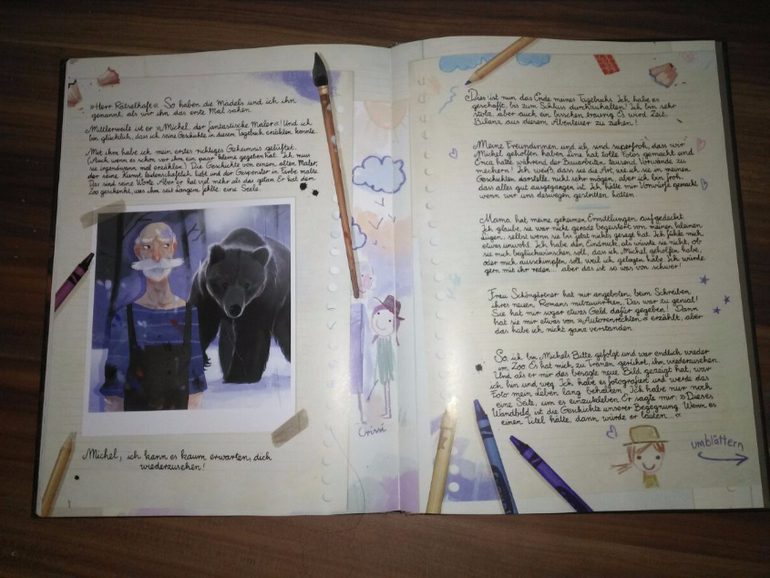 »Herr Rätselhaft«. So haben die Mädels und ich ihn
genannt, als wir ihn das erste Mal sahen.
Mittlerweile ist er »Michel, der fantastische Maler«! Und ich
bin glücklich, dass ich seine Geschichte in diesem Tagebuch erzählen konnte.
Mit ihm habe ich mein erstes richtiges Geheimnis gelüftet.
(Auch wenn es schon vor ihm ein paar kleine gegeben hat. Ich muss
sie irgendwann mal erzählen.) Die Geschichte von einem alten Maler,
der seine Kunst leidenschaftlich liebt und der Gespenster in Farbe malte.
Das sind seine Worte. Aber er hat viel mehr als das getan. Er hat dem
Zoo geschenkt, was ihm seit Langem fehlte: eine Seele.
Michel, ich kann es kaum erwarten, dich
wiederzusehen!
Crissi
Dies ist nun das Ende meines Tagebuchs. Ich habe es
geschafft, bis zum Schluss durchzuhalten! Ich bin sehr
stolz, aber auch ein bisschen traurig. Es wird Zeit,
Bilanz aus diesem Abenteuer zu ziehen!
Meine Freundinnen und ich sind superfroh, dass wir
Michel geholfen haben. Eine hat tolle Fotos gemacht und
Erica hatte während der Bauarbeiten tausend Vorwände zu
meckern! Ich weiß, dass sie die Art, wie ich sie in meinen
Geschichten darstelle, nicht sehr mögen, aber ich bin froh,
dass alles gut ausgegangen ist. Ich hätte mir Vorwürfe gemacht,
wenn wir uns deswegen gestritten hätten.
Mama hat meine geheimen Ermittlungen aufgedeckt.
Ich glaube, sie war nicht gerade begeistert von meinen kleinen
Lügen, selbst wenn sie bis jetzt nichts gesagt hat. Ich fühle mich
etwas unwohl. Ich habe den Eindruck, als wüsste sie nicht, ob
sie mich beglückwünschen soll, dass ich Michel geholfen habe,
oder mich ausschimpfen soll, weil ich gelogen habe. Ich würde
gern mit ihr reden ... aber das ist so was von schwer!
Frau Schöngärtner hat mir angeboten, beim Schreiben
ihres neuen Romans mitzuwirken. Das war so genial!
Sie hat mir sogar etwas Geld dafür gegeben! Dann
hat sie mir etwas von »Autorenrechten« erzählt, aber
das habe ich nicht ganz verstanden.
So, ich bin Michels Bitte gefolgt und war endlich wieder
im Zoo. Es hat mich zu Tränen gerührt, ihn wiederzusehen.
Und als er mir das besagte neue Bild gezeigt hat, war
ich hin und weg. Ich habe es fotografiert und werde das
Foto mein Leben lang behalten. Ich habe nur noch
eine Seite, um es einzukleben. Er sagte mir: »Dieses
Wandbild ist die Geschichte unserer Begegnung. Wenn es
einen Titel hätte, dann würde er lauten ...«
umblättern